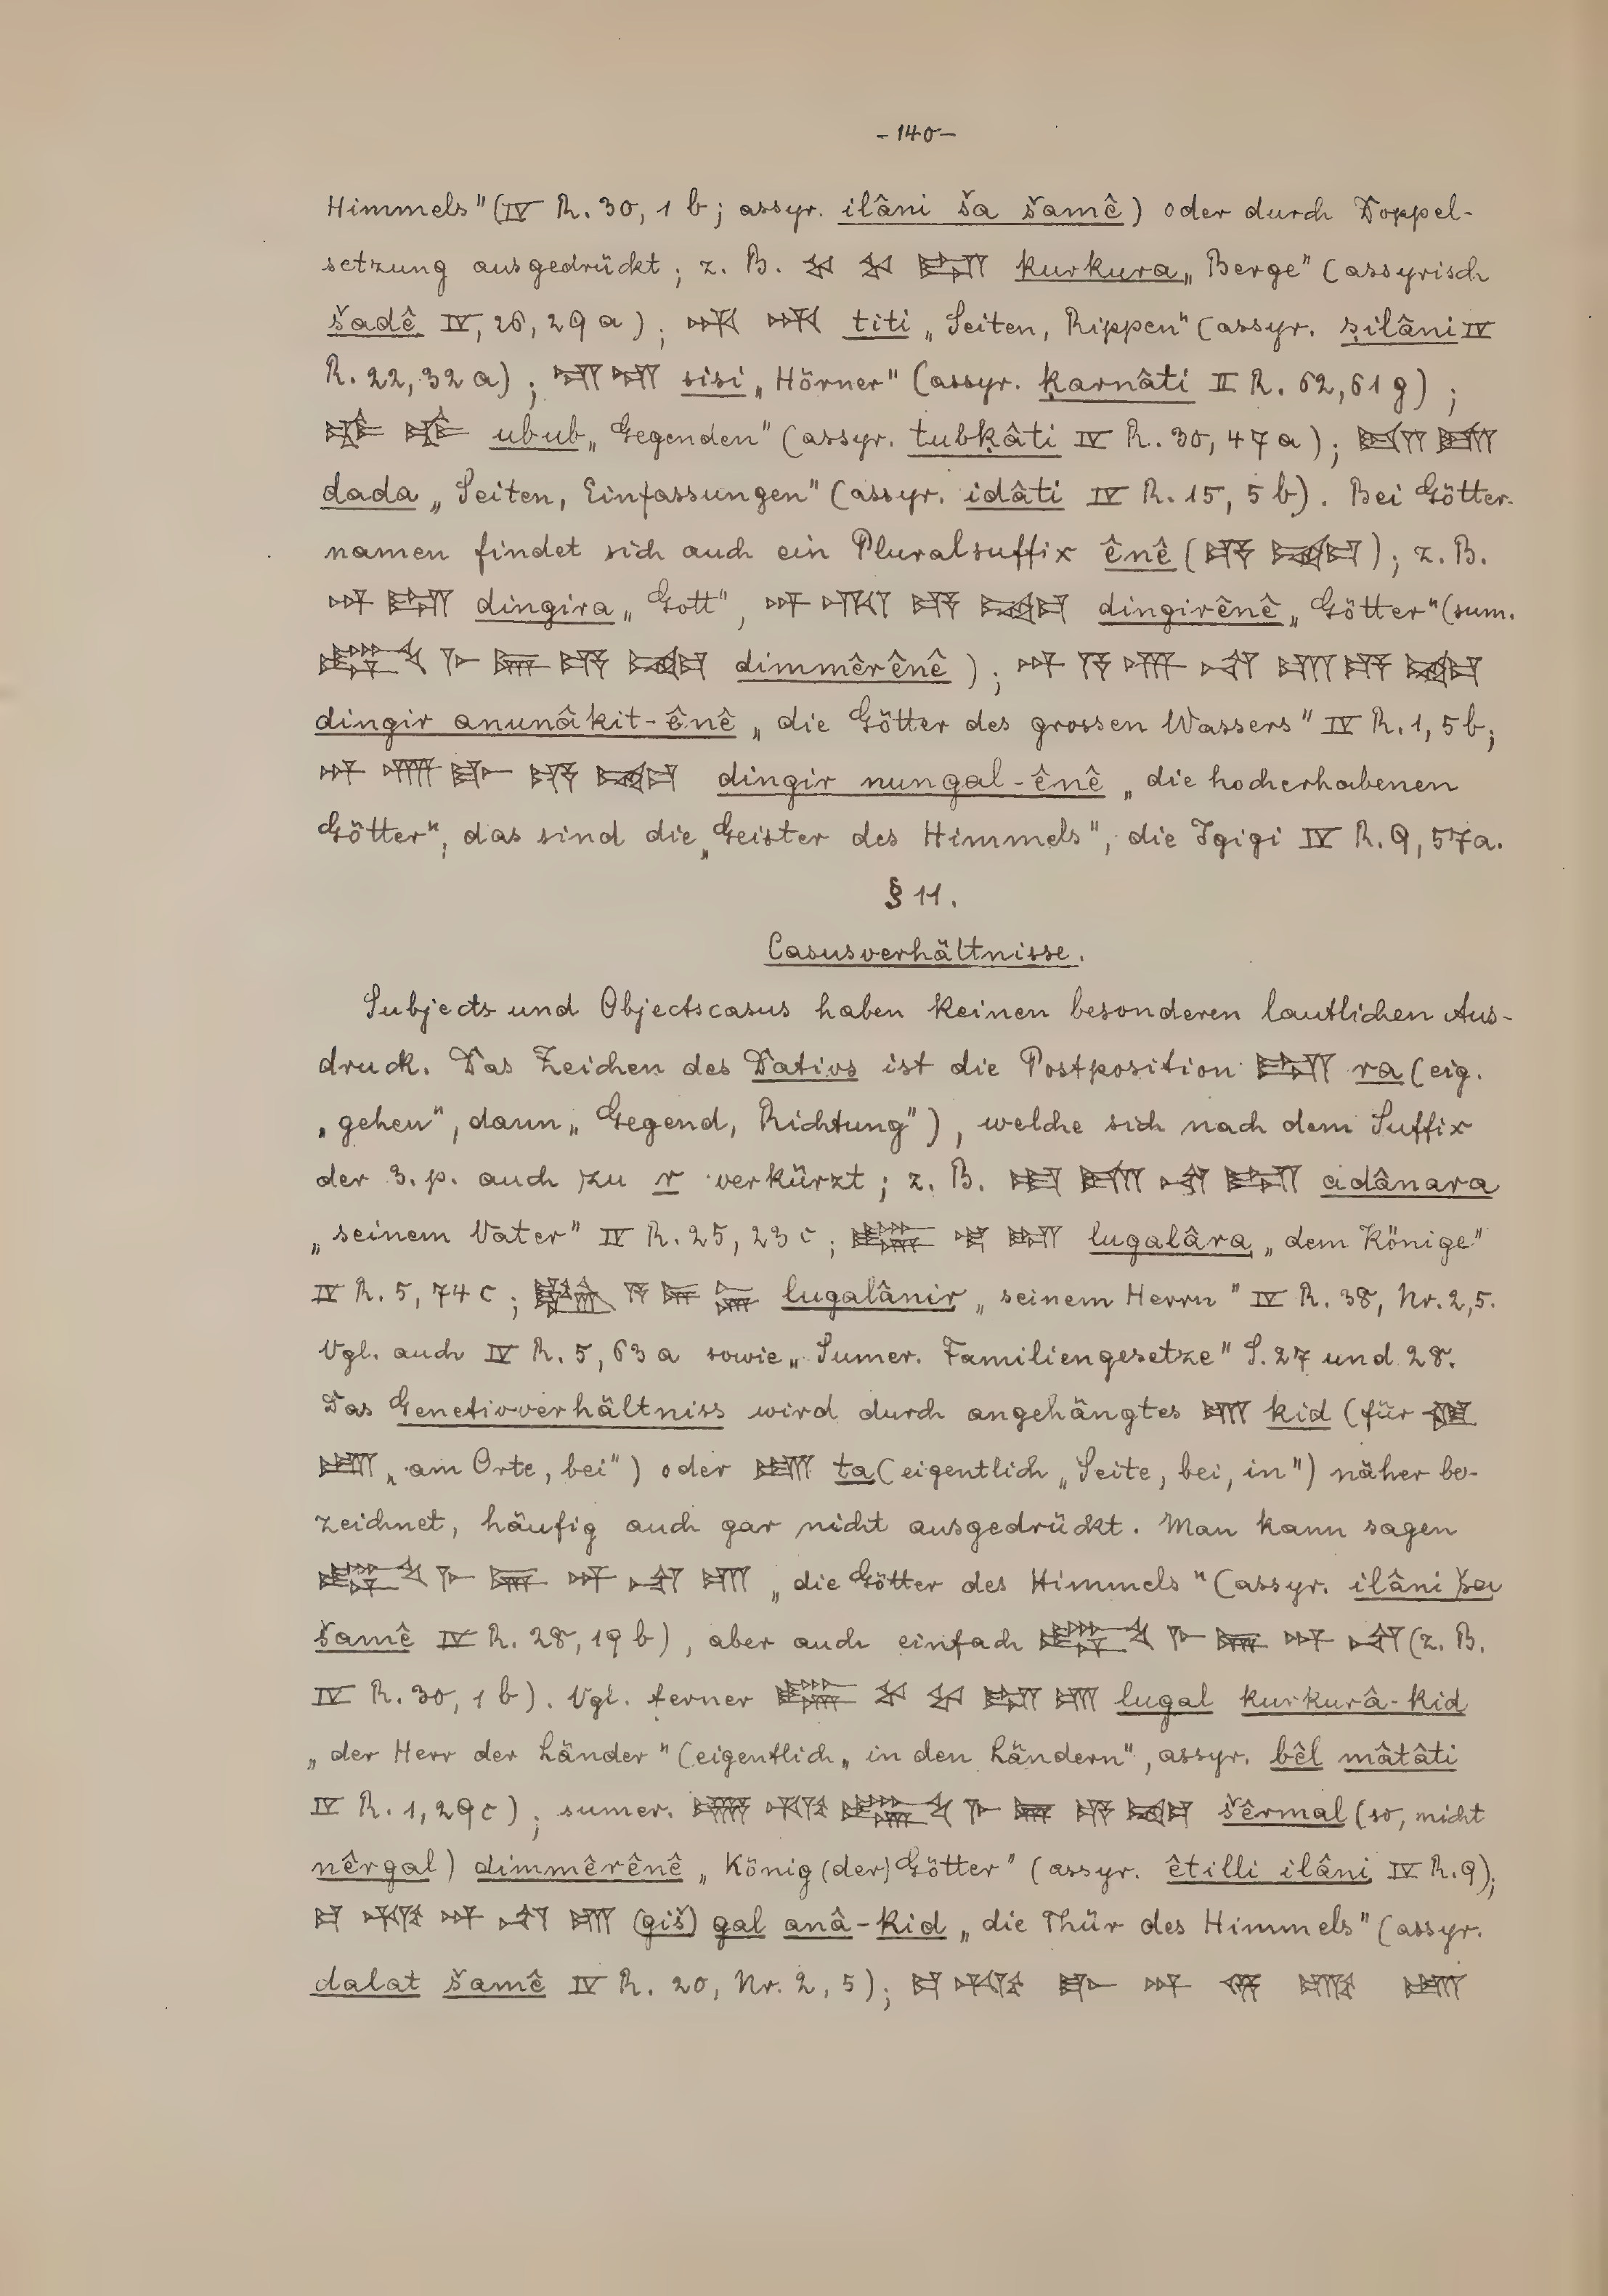 -140-
Himmels" (IV R. 30, 1 b; assyr. ilâni ša šamê) oder durch Doppel-
setzung ausgedrückt; z. B. 𒆳 𒆳 𒊏 kurkura „Berge" (assyrisch
šadê IV, 26, 29 a); 𒋾 𒋾 titi „Seiten, Rippen" (assyr. ṣilâni IV
R. 22, 32 a); 𒋛 𒋛 sisi „Hörner" (assyr. ḳarnâti II R. 62, 61 g);
𒌒 𒌒 ubub „Gegenden" (assyr. tubḳâti IV R. 30, 47 a); 𒁕 𒁕
dada „Seiten, Einfassungen" (assyr. idâti IV R. 15, 5 b). Bei Götter-
namen findet sich auch ein Pluralsuffix ênê (𒂊 𒉈); z. B.
𒀭 𒊏 dingira „Gott", 𒀭 𒊑 𒂊 𒉈 dingirênê „Götter" (sum.
𒂊 𒉈 dimmêrênê); 𒀭 𒀀 𒉣 𒈾 𒆤 𒂊 𒉈
dingir anunâkit-ênê „die Götter des grossen Wassers" IV R. 1, 5 b;
𒀭 𒉣 𒃲 𒂊 𒉈 dingir nungal-ênê „die hocherhabenen
Götter", das sind die „Geister des Himmels", die Igigi IV R. 9, 57 a.
§ 11.
Casusverhältnisse.
Subjects und Objectscasus haben keinen besonderen lautlichen Aus-
druck. Das Zeichen des Dativs ist die Postposition 𒊏 ra (eig.
„gehen", dann „Gegend, Richtung"), welche sich nach dem Suffix
der 3. p. auch zu r verkürzt; z. B. 𒀜 𒁕 𒈾 𒊏 adânara
„seinem Vater" IV R. 25, 23 c; 𒈗 𒆷 𒊏 lugalâra „dem Könige"
IV R. 5, 74 c; 𒀀 𒉌 𒅕 lugalânir „seinem Herrn" IV R. 38, Nr. 2, 5.
Vgl. auch IV R. 5, 63 a sowie „Sumer. Familiengesetze" S. 27 und 28.
Das Genetivverhältniss wird durch angehängtes 𒆤 kid (für 𒆠
𒋫 „am Orte, bei") oder 𒋫 ta (eigentlich „Seite, bei, in") näher be-
zeichnet, häufig auch gar nicht ausgedrückt. Man kann sagen
𒀭 𒈾 𒆤 „die Götter des Himmels" (assyr. ilâni ša
šamê IV R. 28, 19 b), aber auch einfach 𒀭 𒈾 (z. B.
IV R. 30, 1 b). Vgl. ferner 𒈗 𒆳 𒆳 𒊏 𒆤 lugal kurkurâ-kid
„der Herr der Länder" (eigentlich „in den Ländern", assyr. bêl mâtâti
IV R. 1, 29 c); sumer. 𒂊 𒉈 šêrmal (so, nicht
nêrgal) dimmêrênê „König (der) Götter" (assyr. êtilli ilâni IV R. 9);
𒀭 𒈾 𒆤 (giš) gal anâ-kid „die Thür des Himmels" (assyr.
dalat šamê IV R. 20, Nr. 2, 5); 𒃲 𒀭